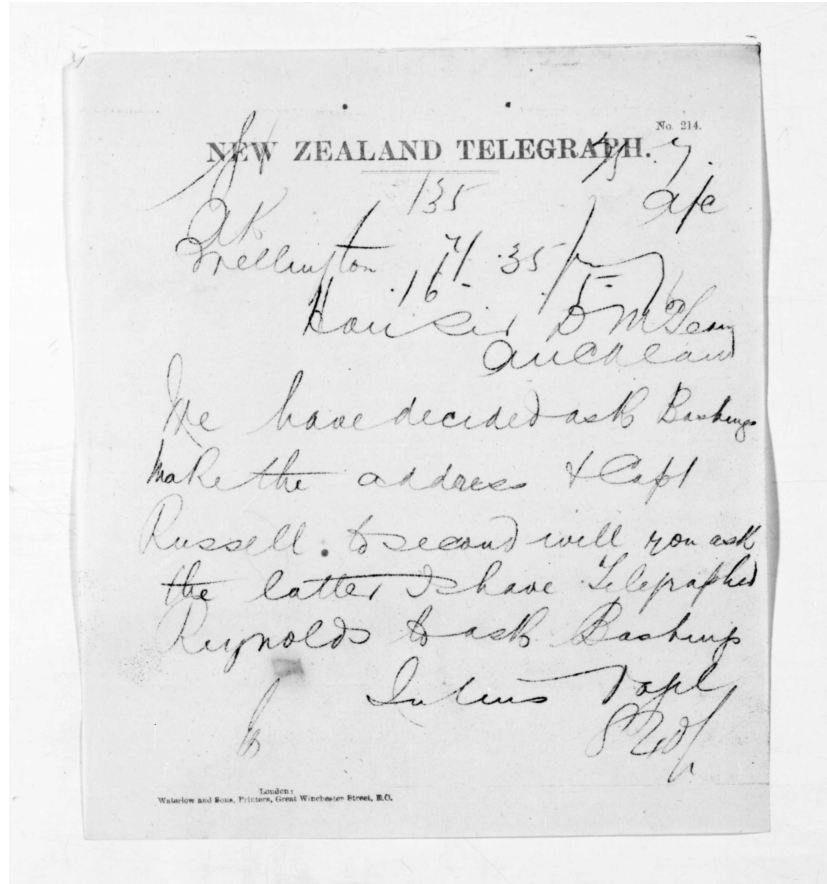 No. 214.
NEW ZEALAND TELEGRAPH.
135
AK
Wellington 7.35 pm
Hon Sir D McLean
Auckland
We have decided ask Bastings
make the address & Capt
Russell. to second will you ask
the latter I have Telegraphed
Reynolds to ask Bastings
Julius Vogel
London:
Waterlow and Sons, Printers, Great Winchester Street, E.C.